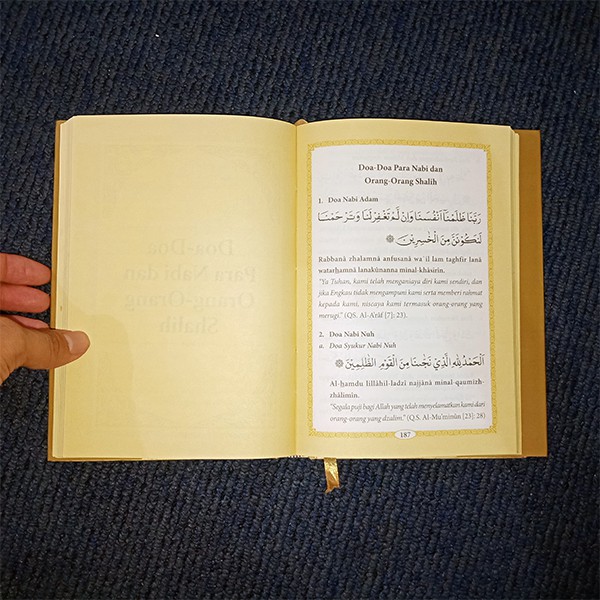 Doa-Doa Para Nabi dan
Orang-Orang Shalih
1. Doa Nabi Adam
رَبَّنَا ظَلَمْنَآ اَنْفُسَنَا وَاِنْ لَّمْ تَغْفِرْلَنَا وَتَرْحَمْنَا
لَنَكُوْنَنَّ مِنَ الْخٰسِرِيْنَ ۞
Rabbanā zhalamnā anfusanā wa`il lam taghfir lanā
watarḥamnā lanakūnanna minal-khāsirīn.
"Ya Tuhan, kami telah menganiaya diri kami sendiri, dan
jika Engkau tidak mengampuni kami serta memberi rahmat
kepada kami, niscaya kami termasuk orang-orang yang
merugi." (QS. Al-A'rāf [7]: 23).
2. Doa Nabi Nuh
a. Doa Syukur Nabi Nuh
اَلْحَمْدُ لِلّٰهِ الَّذِيْ نَجّٰىنَا مِنَ الْقَوْمِ الظّٰلِمِيْنَ ۞
Al-ḥamdu lillāhil-ladzī najjānā minal-qaumizh-
zhālimīn.
"Segala puji bagi Allah yang telah menyelamatkan kami dari
orang-orang yang dzalim." (Q.S. Al-Mu'minūn [23]: 28)
187